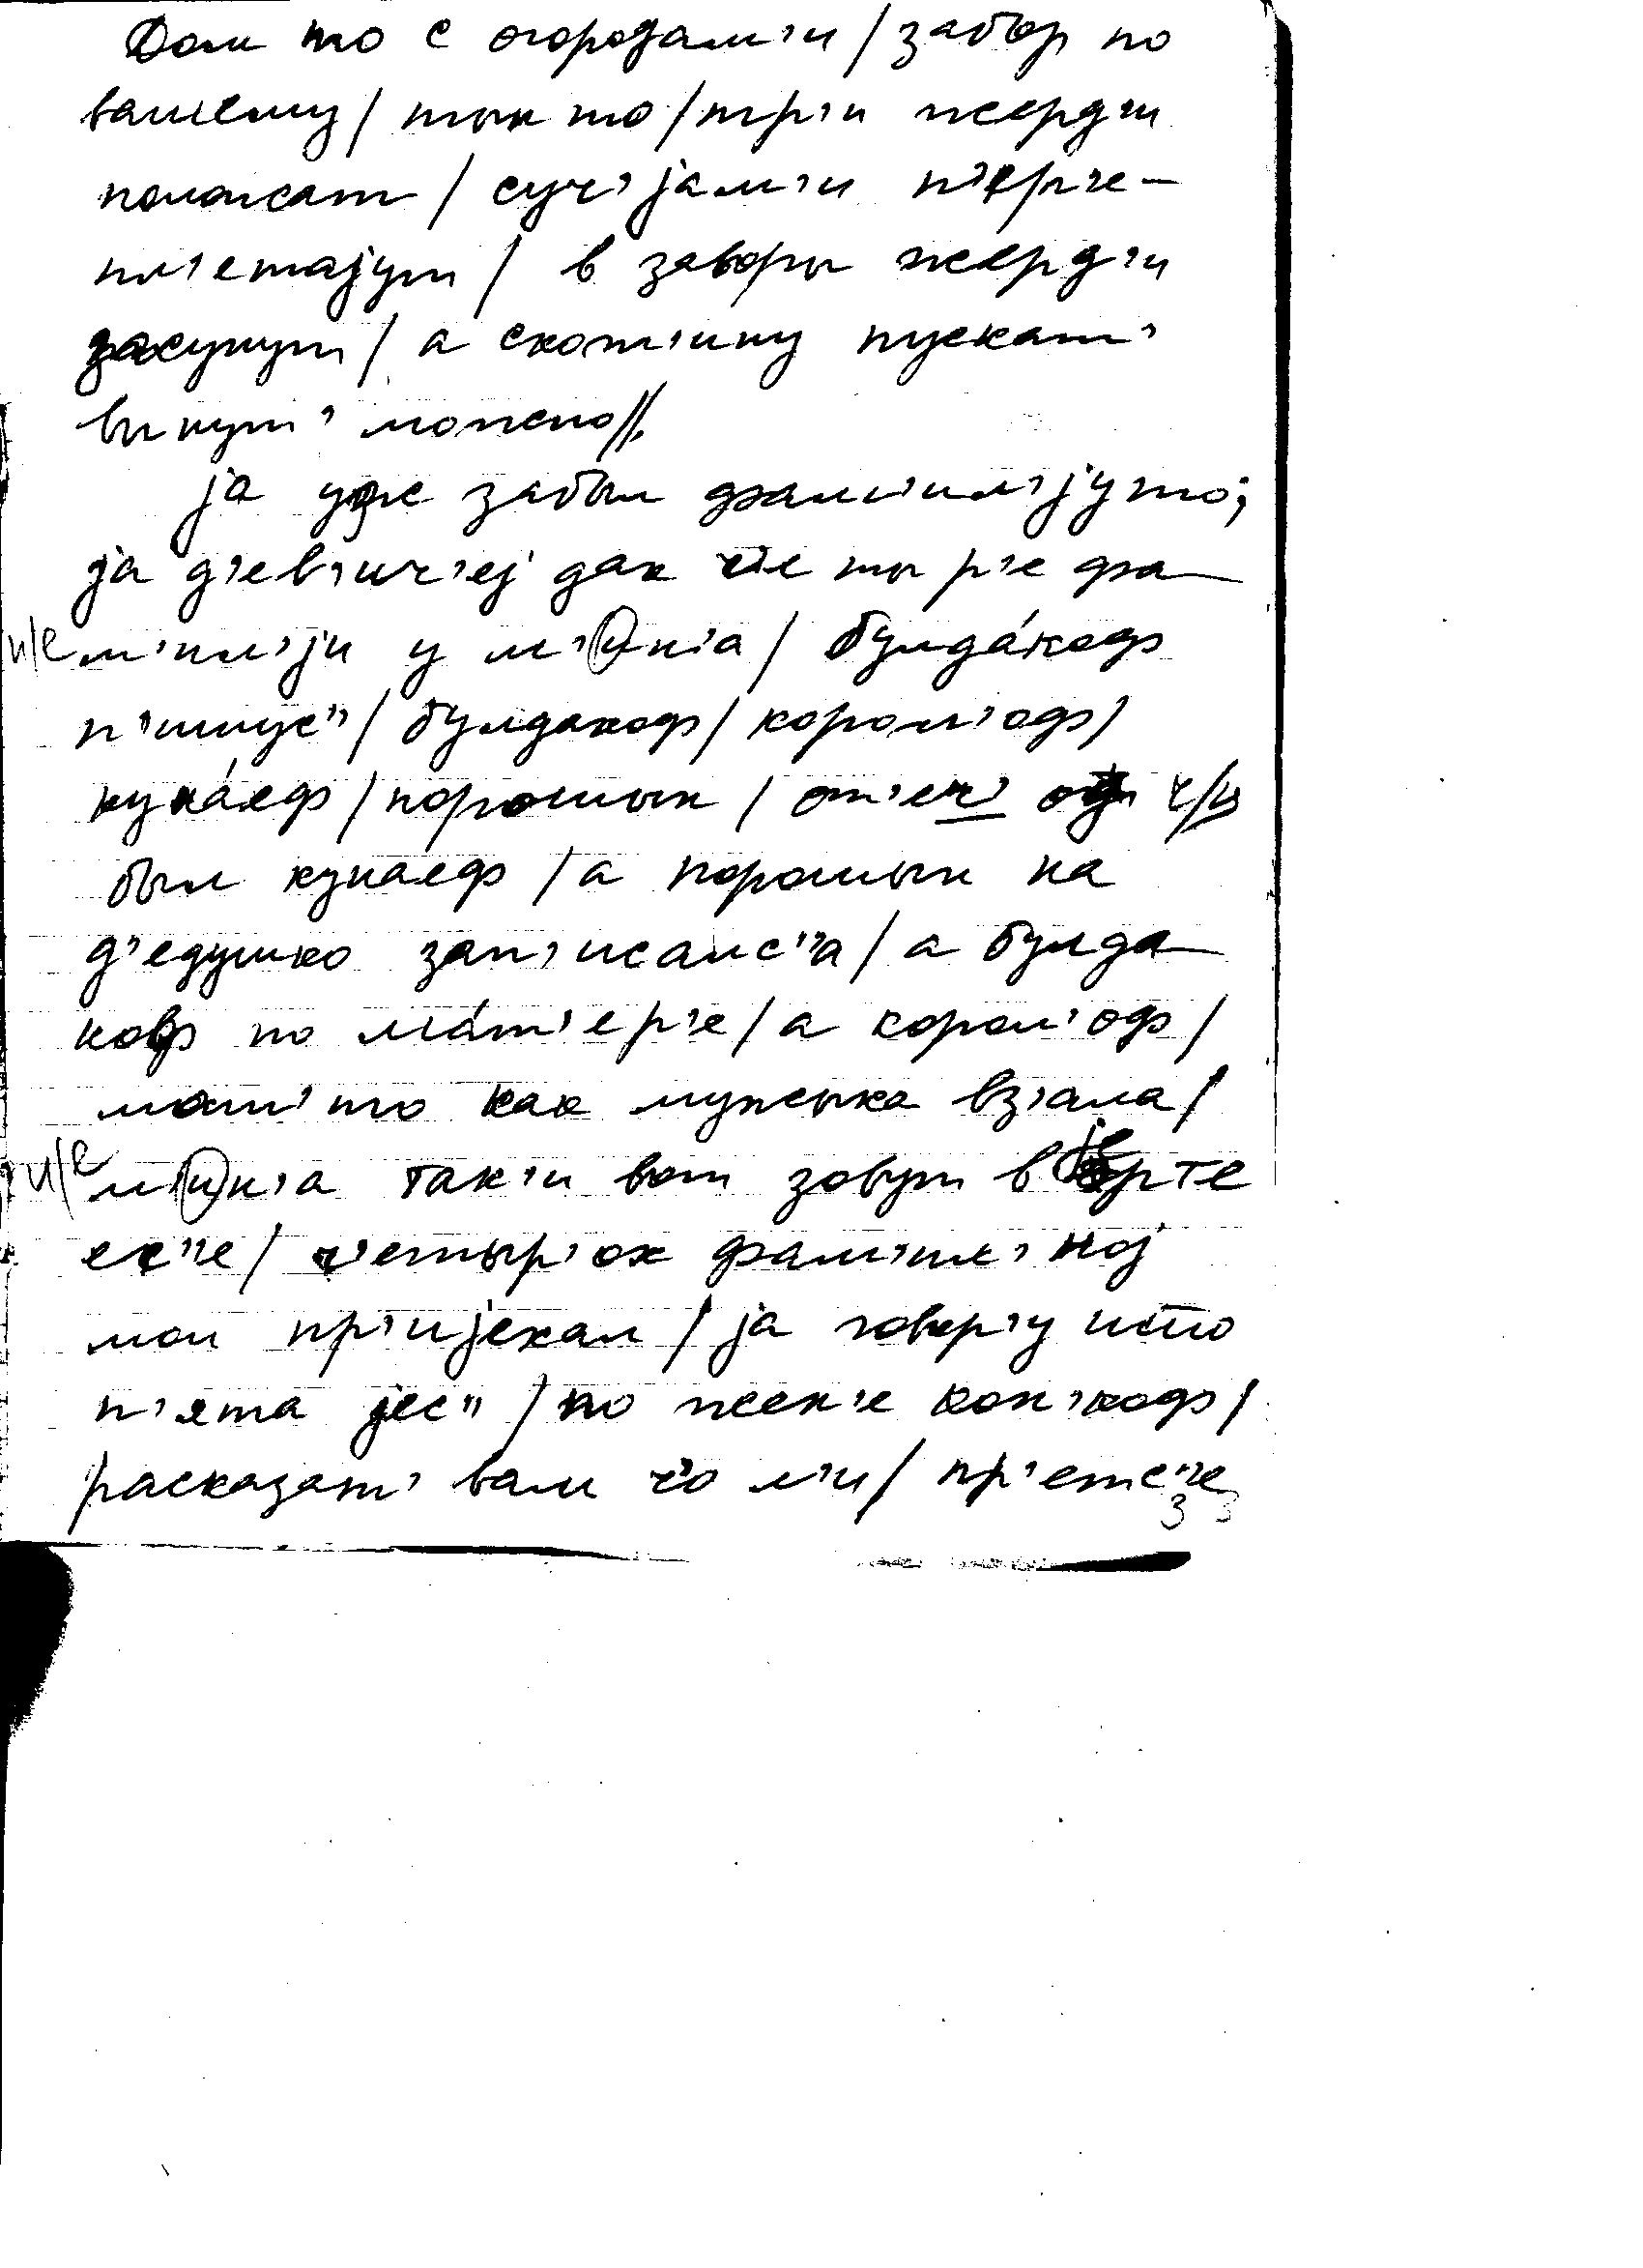 Дом то с огородам'и / забор по
вашему / тын то / тр'и жерд'и
положат / суч'јам'и п'ер'е-
пл'етајут / в заворы жерд'и
засунут / а скот'ину пускат'
вынут'можно //.
ја уже забыл фам'ил'јуто;
ја д'ев'ич'ej дак ч'еты р'е фа
и/е м'ил'јии у м'ин'а / булда́коф
п'ишус" / булдакоф / корол'оф /
куна́еф / порошын / от'еч' ч/ц
был кунаеф / а порошын на
д'едушко зап'исалс"а / а булда
коф по ма́т'ер'е / а корол'оф /
мат' то как мужыка вз'ала /
и/е м'ин'а так'и вот зовут в
ес"е / ч'етыр'ох фам'ил'ној
мол пр'ијехал / ја говор'у што
п'ята јес" / по жен'е кон'коф /
расказат' вам ч'о л'и / пр'етс"е
3 3